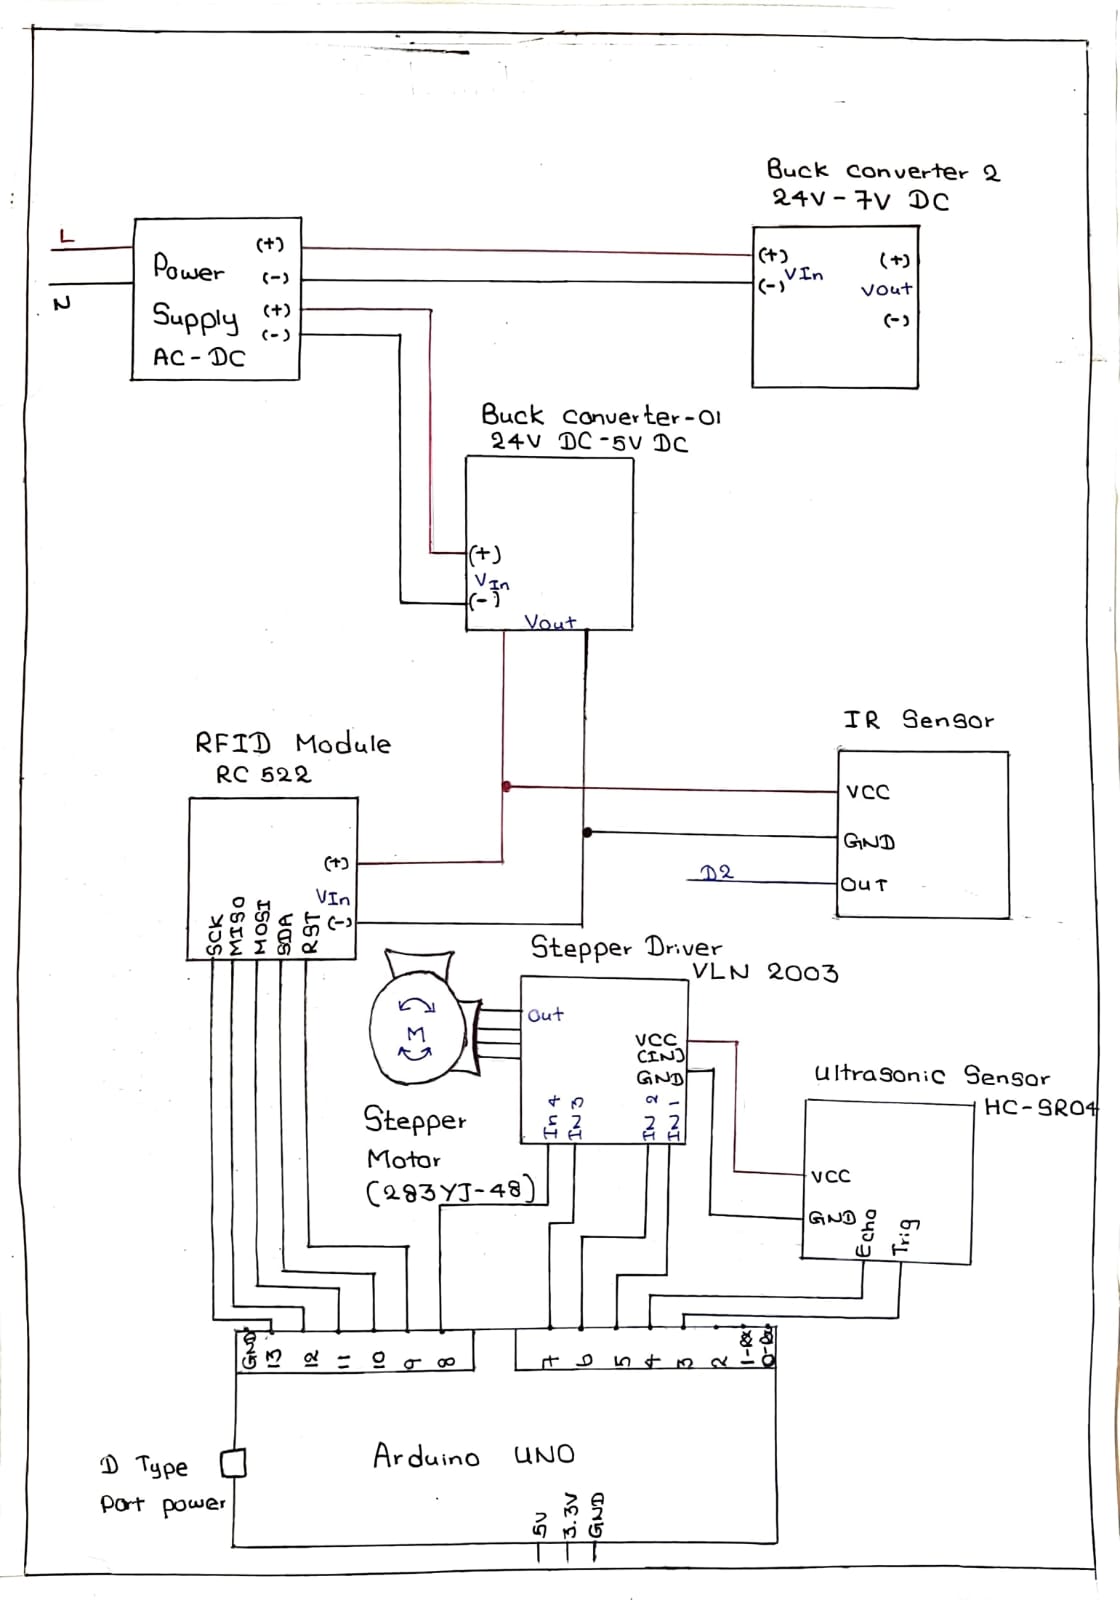 Buck converter 2
24V - 7V DC
L
N
Power
Supply
AC - DC
(+)
(-)
(+)
(-)
(+)
VIn
(-)
(+)
Vout
(-)
Buck converter-01
24V DC-5V DC
(+)
VIn
(-)
Vout
IR Sensor
VCC
GND
OUT
D2
RFID Module
RC 522
(+)
VIn
(-)
SCK
MISO
MOSI
SDA
RST
Stepper Driver
VLN 2003
Out
VCC
(IN)
GND
In4
IN3
IN2
IN1
M
Stepper
Motor
(283YJ-48)
Ultrasonic Sensor
HC-SR04
VCC
GND
Echo
Trig
GND
13
12
11
10
9
8
7
6
5
4
3
2
1-Rx
Arduino UNO
D Type
Port power
5V
3.3V
GND